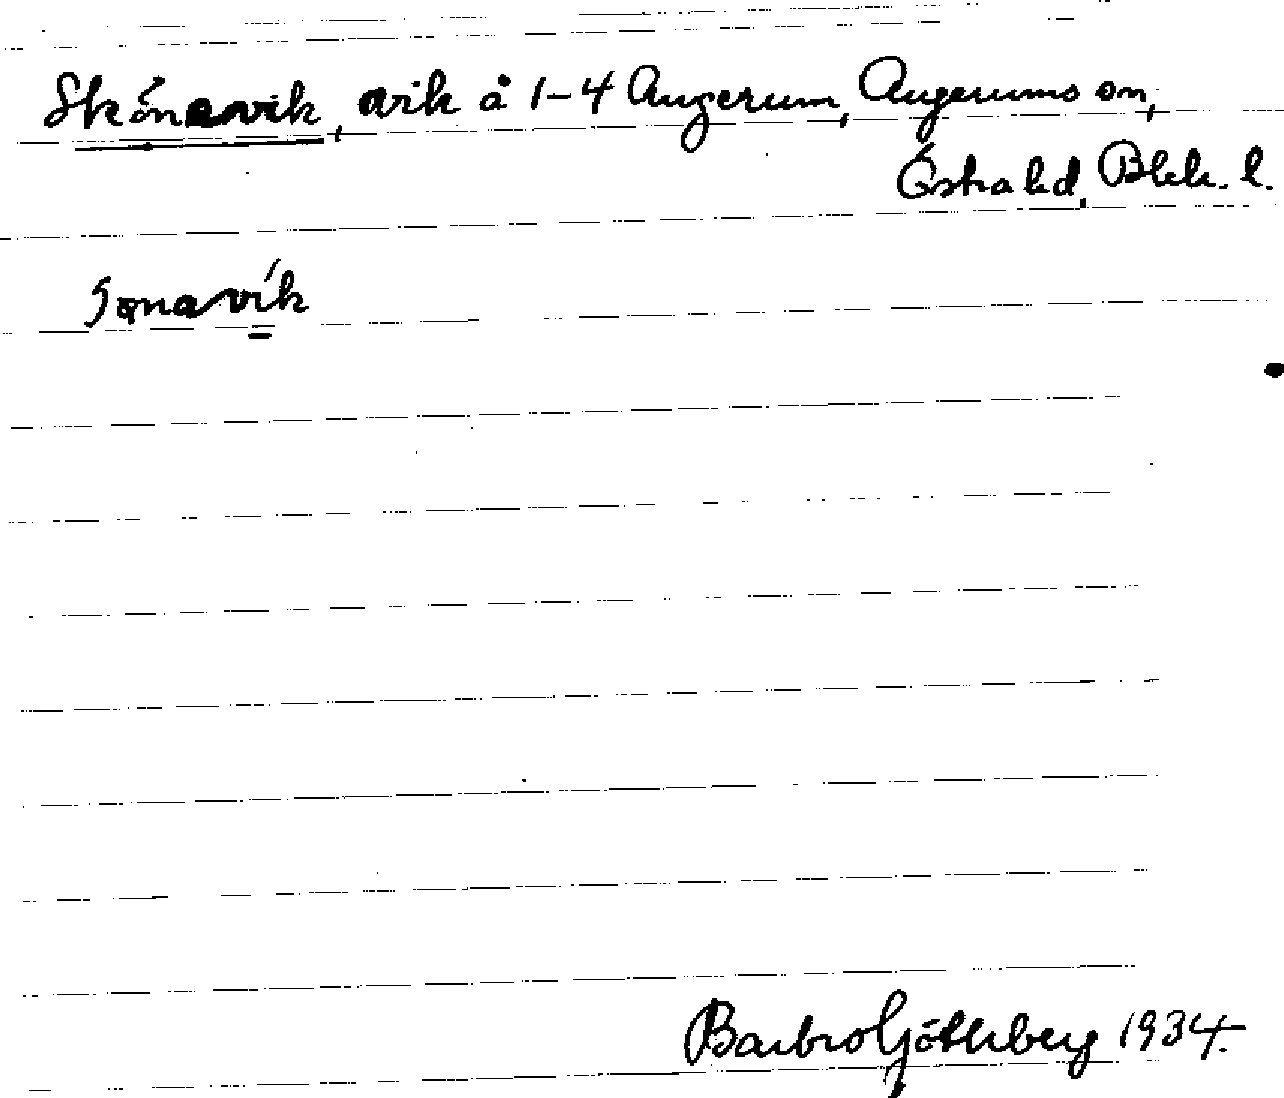 Skönavik, vik å 1-4 Augerum, Augerums sn,
Östra hd, Blek. l.
Barbro Göthberg 1934.